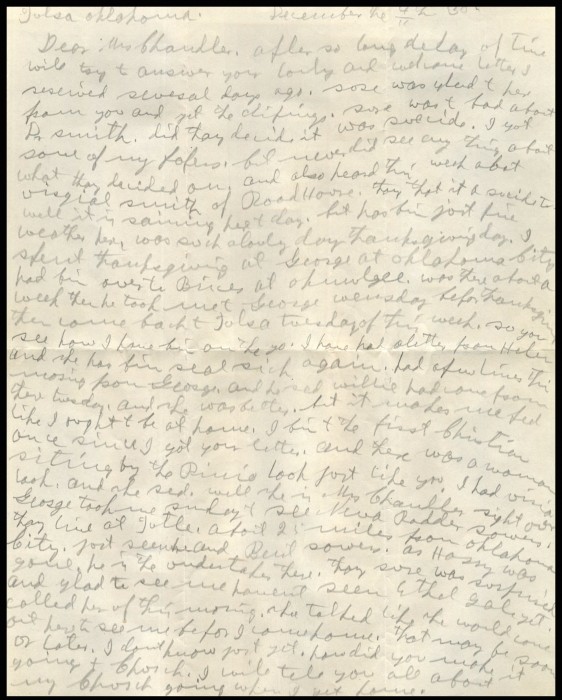 Tulsa Oklahoma. December the 4 th 30.
Dear Mrs Chandler. after so long delay of time
will try t answer your lovly and welcome letter I
reseived several days ago. sose was glad t hear
from you and get the clipings. sose was t bad about
Dr smith. did thay decide it was suicide. I got
some of my papers. but never did see any thing about
what thay decided on, and also heard this week abot
virgial smith of Road House. thay that it a suicide to.
well it is raining here t day. but has bin just fine
weather here, was such a lovly day thanksgiving day. I
spent thanksgiving at George at oklahoma City
had bin over to at okmulgee. was there about a
week then he took me t George wensday before thanksgiving
then come back t Tulsa tuesday of this week. so you
see how I have bin on the go. I have had a letter from Helen
and she has bin real sick again. had a few lines this
morning from George. and he sed willie had one from
there tusday. and she was better. but it makes me feel
like I ought t be at home. I bin t the first Christian
once since I got your letter. and there was a woman
siting by the Piano look just like you I had
look. and she sed. well she is Mrs Chandler right over
George took me sunday t see Neva Radder Sowers.
thay live at Tutle. abot 25 miles from oklahoma
City. just seen he and Beril sowers. as Harry was
gone. he is the undertaker there. thay sure was surprised
and glad to see me havent seen Ethel Gale yet.
called her up this morning. she talked like she would come
out here to see me before I come home. that may be soon
or later. I dont know just yet. how did you make it
going t Church. I will tell you all about
my Church going when I get home.